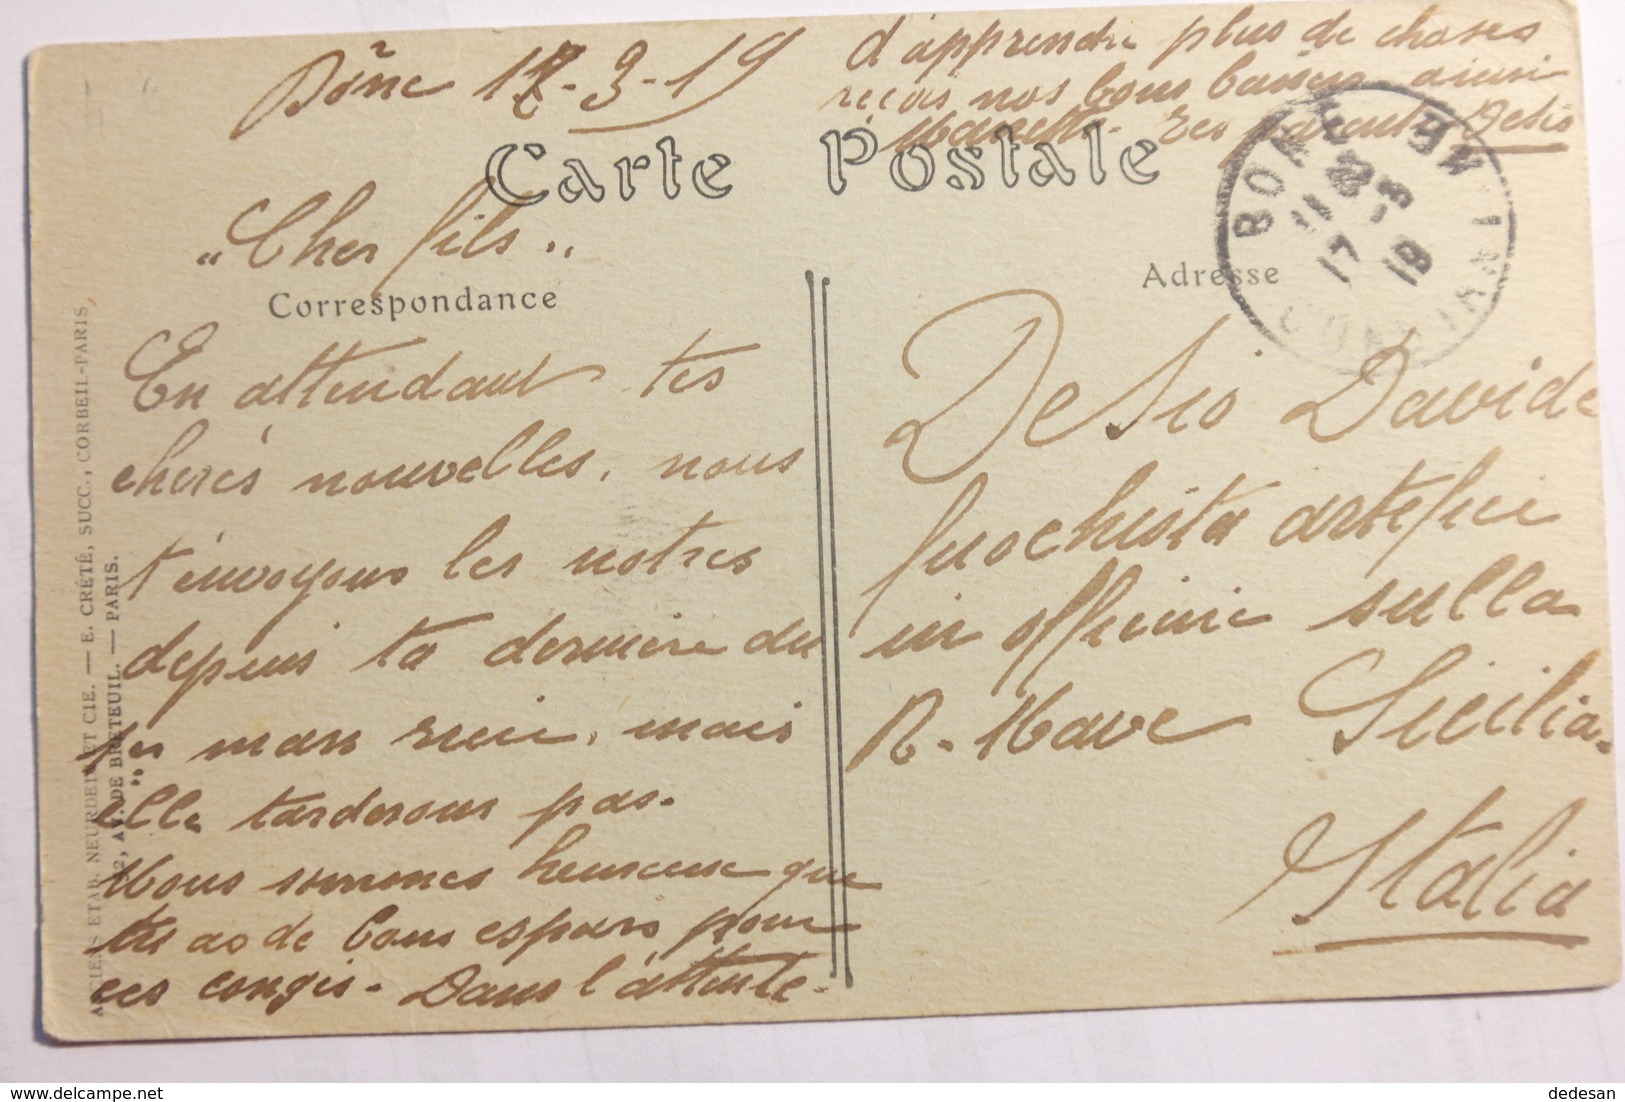 Bône 17-3-19
Carte Postale
"Cher fils"
Correspondance
En attendant tes
cheres nouvelles, nous
t'envoyons les notres
depuis ta derniere du
mais
elle tarderont pas.
Nous sommes heureuse que
tu as de bons espoirs pour
ces congés. Dans l'attente
d'apprendre plus de choses
reçois nos bons baisers ainsi
Manette. Tes parents Desio
BONE
11
17 - 3
19
CONSTANTINE
Adresse
De Sio Davide
fuochista artefici
in officine sulla
R. Nave Sicilia.
Italia
ANCIENS ETAB. NEURDEIN ET CIE. — E. CRÉTÉ, SUCC., CORBEIL-PARIS,
52, AV. DE BRETEUIL. — PARIS.
delcampe.net
dedesan